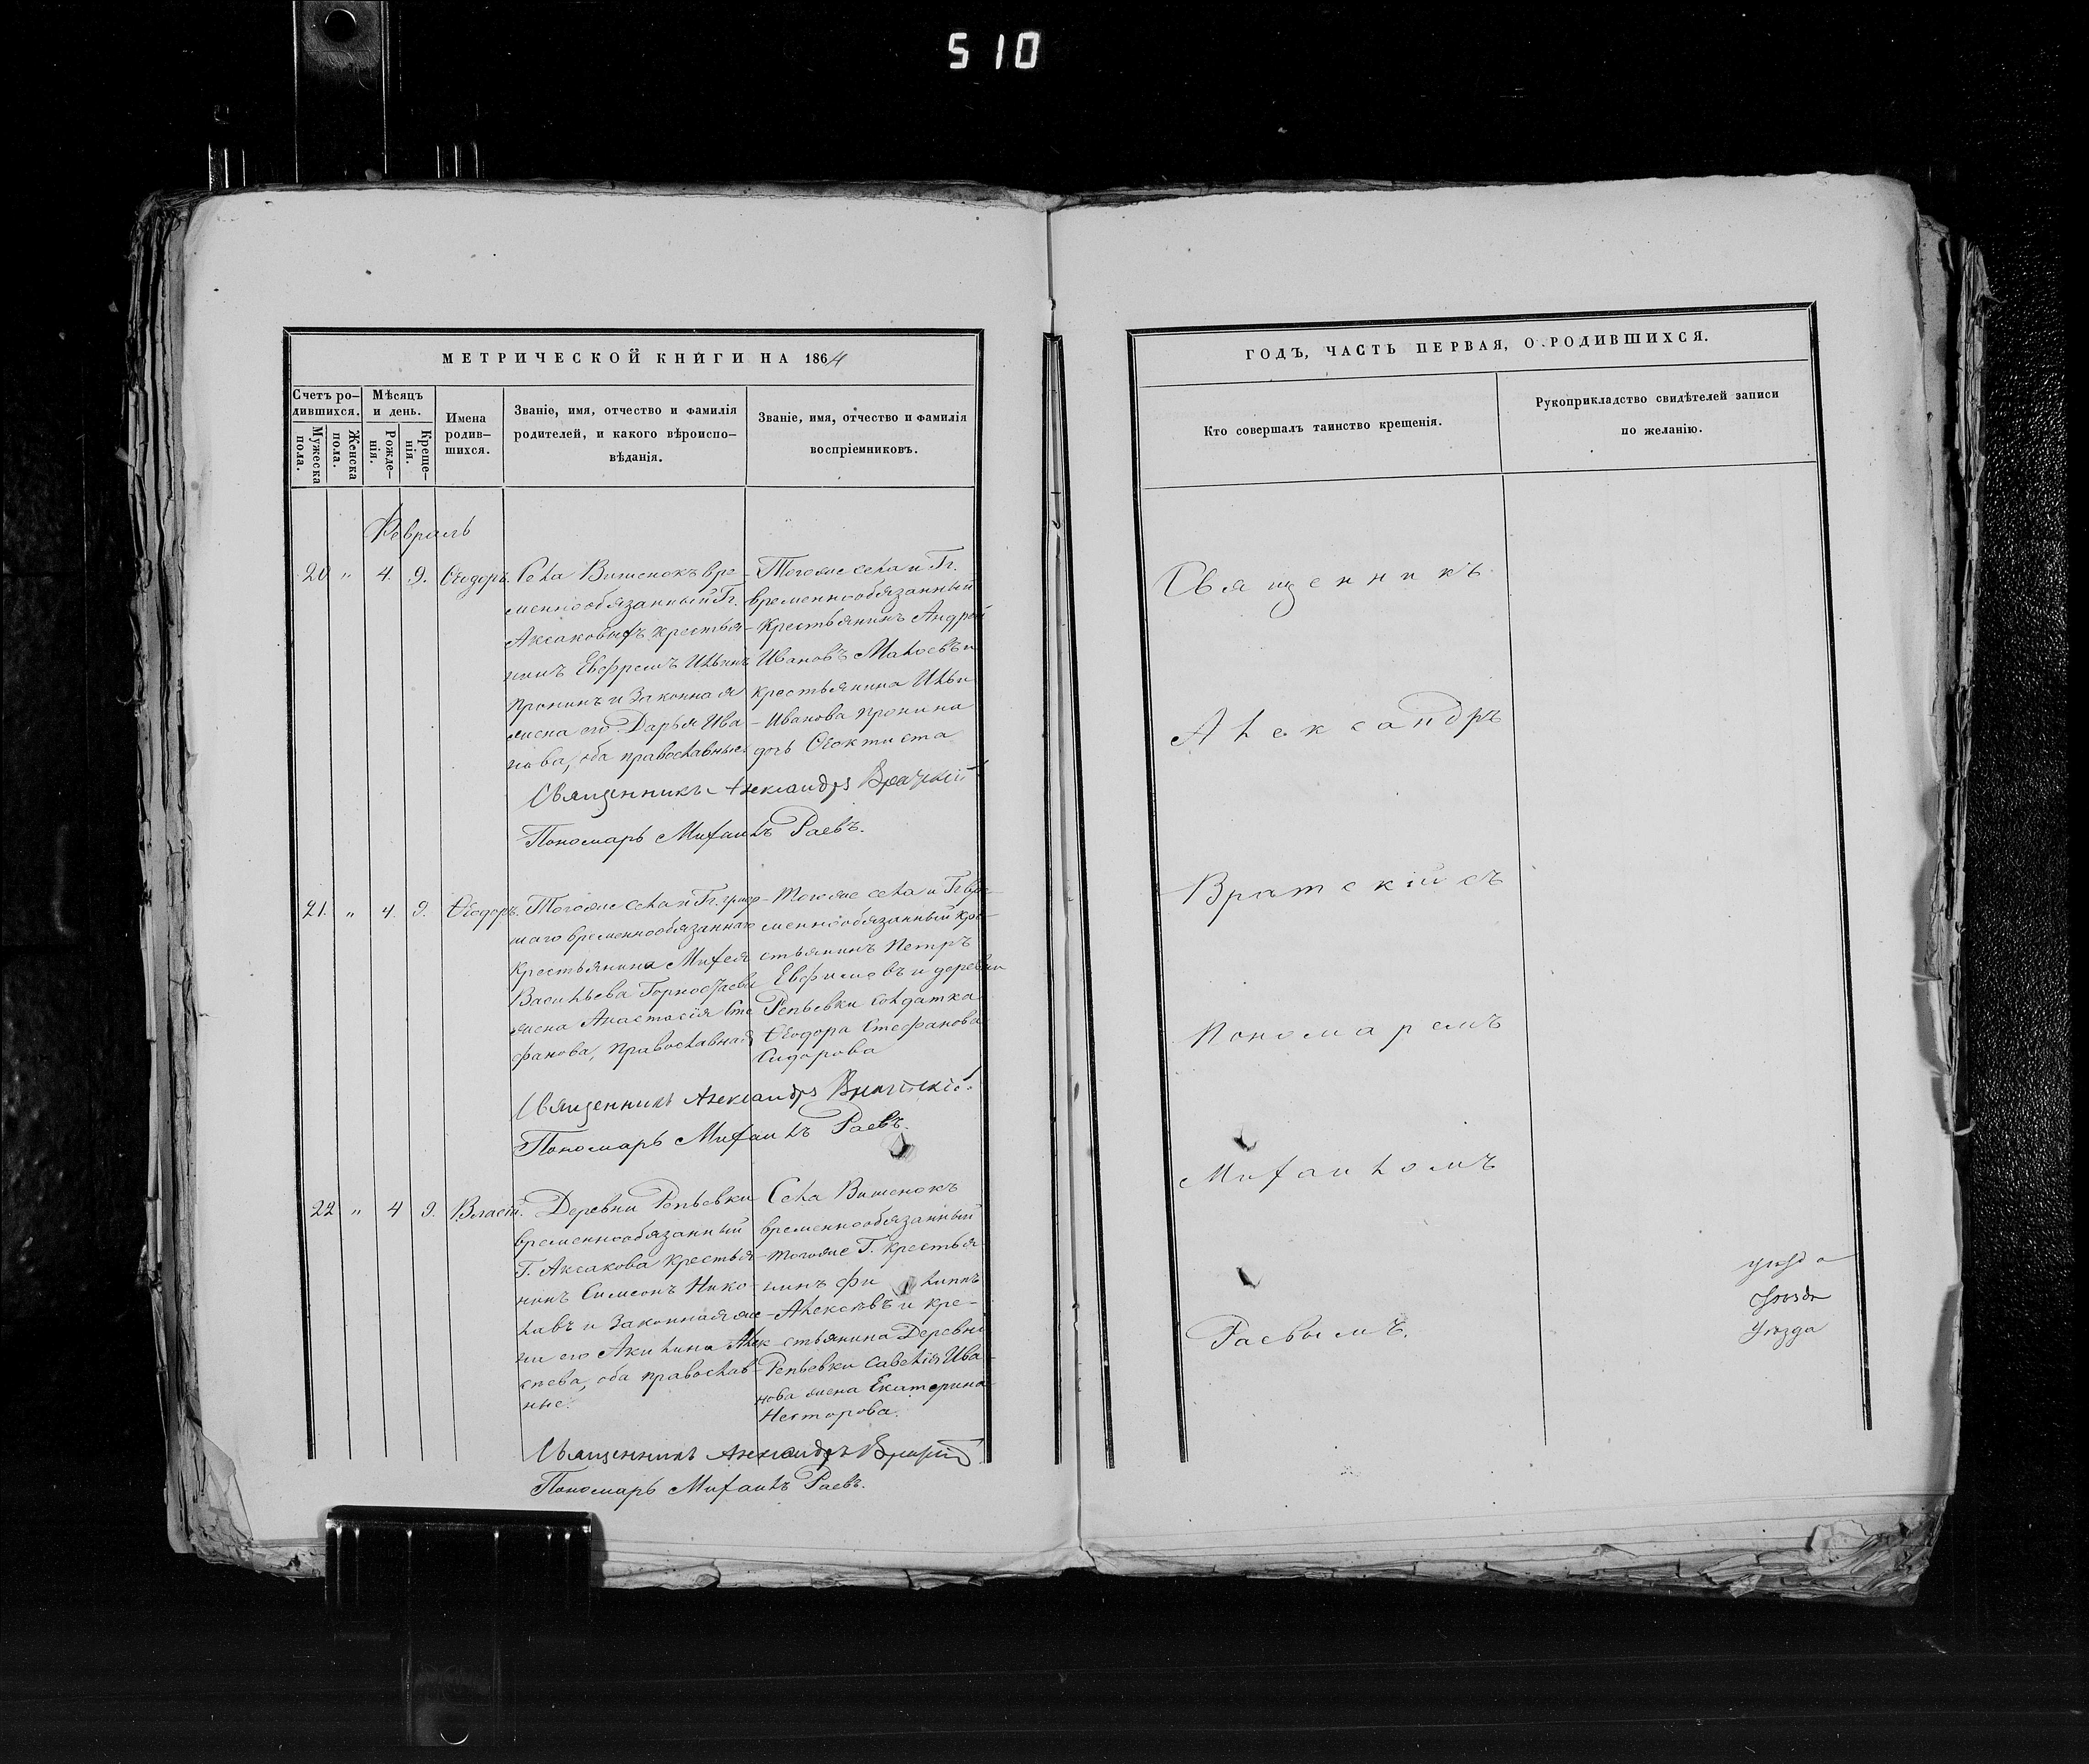 510
МЕТРИЧЕСКОЙ КНИГИ НА 1864
Счетъ ро-
дившихся.
Мужеска пола.
Женска пола.
Мѣсяцъ
и день.
Рожде-
нія.
Креще-
нія.
Имена
родив-
шихся.
Званіе, имя, отчество и фамилія
родителей, и какого вѣроиспо-
вѣданія.
Званіе, имя, отчество и фамилія
воспріемниковъ.
Февраль
20 " 4. 9. Ѳеодоръ.
Села Вишенокъ вре-
меннообязанный Гг.
Аксаковыхъ крестья-
нинъ Евфремъ Ильинъ
Пронинъ и законная
жена его Дарья Ива-
нова, оба православные
Тогоже села и Гг.
временнообязанный
крестьянинъ Андрей
Ивановъ Малоевъ и
крестьянина Ильи
Иванова Пронина
дочь Ѳеоктиста
Священникъ Александръ Братскій
Пономарь Михаилъ Раевъ.
21. " 4. 9. Ѳеодоръ.
Тогоже села и Гг.
временнообязаннаго
крестьянина Михея
Васильева
жена Анастасія Сте
фанова, православная
Тогоже села и Гг вре-
меннообязанный кре-
стьянинъ Петръ
Евфимовъ и деревни
Репьевки солдатка
Ѳеодора Стефанова
Сидорова
Священникъ Александръ Братскій
Пономарь Михаилъ Раевъ.
22 " 4 9. Власій.
Деревни Репьевки
временнообязанный
Г. Аксакова крестья-
нинъ Симеонъ Нико-
лавъ и законная же-
на его Акилина Алек
сѣева, оба православ-
ные.
Села Вишенокъ
временнообязанный
тогоже Г. крестья
нинъ Филиппъ
Алексѣевъ и кре-
стьянина Деревни
Репьевки Савелія Ива-
нова жена Екатерина
Несторова.
Священникъ Александръ Братскій
Пономарь Михаилъ Раевъ.
ГОДЪ, ЧАСТЬ ПЕРВАЯ, О РОДИВШИХСЯ.
Кто совершалъ таинство крещенія.
Рукоприкладство свидѣтелей записи
по желанію.
Священникъ
Александръ
Братскій съ
Пономаремъ
Михаиломъ
Раевымъ.
Уѣзда